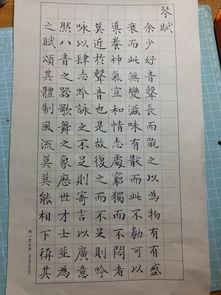 琴賦
余少好音聲長而翫之以為物有盛
衰而此無變滋味有猒而此不勌可以
導養神氣宣和情志處窮獨而不悶者
莫近於聲音也是故復之而不足則吟
詠以肆志吟詠之不足則寄言以廣意
然八音之器歌舞之象歷世才士並為
之賦頌其體制風流莫莫能相下稱其